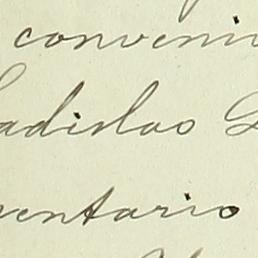 conveni
ladislao
entario